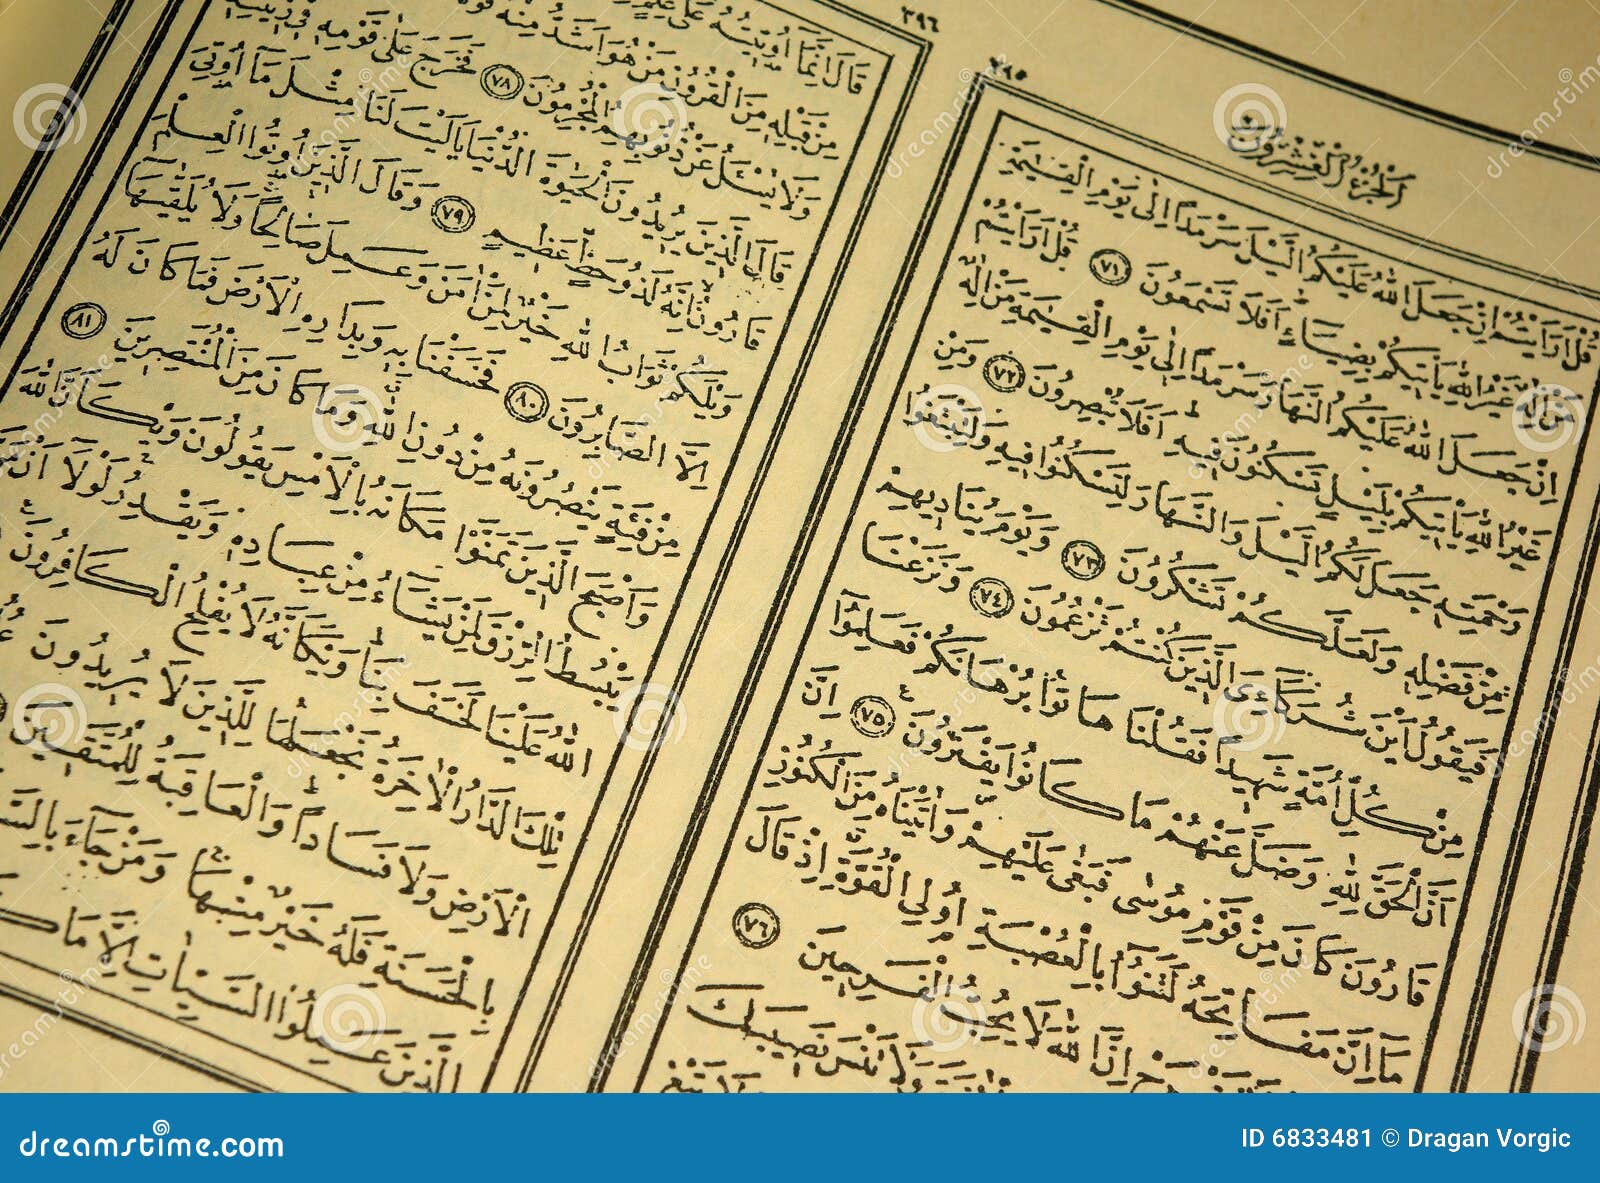 ٣٩٥
اَلْجُزْءُ الْعِشْرُونَ
قُلْ اَرَاَيْتُمْ اِنْ جَعَلَ اللّٰهُ عَلَيْكُمُ الَّيْلَ سَرْمَدًا اِلٰى يَوْمِ الْقِيٰمَةِ
مَنْ اِلٰهٌ غَيْرُ اللّٰهِ يَاْتِيكُمْ بِضِيَٓاءٍ اَفَلَا تَسْمَعُونَ ٧١ قُلْ اَرَاَيْتُمْ
اِنْ جَعَلَ اللّٰهُ عَلَيْكُمُ النَّهَارَ سَرْمَدًا اِلٰى يَوْمِ الْقِيٰمَةِ مَنْ اِلٰهٌ
غَيْرُ اللّٰهِ يَاْتِيكُمْ بِلَيْلٍ تَسْكُنُونَ فِيهِ اَفَلَا تُبْصِرُونَ ٧٢ وَمِنْ
رَحْمَتِهِ جَعَلَ لَكُمُ الَّيْلَ وَالنَّهَارَ لِتَسْكُنُوا فِيهِ وَلِتَبْتَغُوا
مِنْ فَضْلِهِ وَلَعَلَّكُمْ تَشْكُرُونَ ٧٣ وَيَوْمَ يُنَادِيهِمْ
فَيَقُولُ اَيْنَ شُرَكَٓاءِىَ الَّذِينَ كُنْتُمْ تَزْعُمُونَ ٧٤ وَنَزَعْنَا
مِنْ كُلِّ اُمَّةٍ شَهِيدًا فَقُلْنَا هَاتُوا بُرْهَانَكُمْ فَعَلِمُٓوا
اَنَّ الْحَقَّ لِلّٰهِ وَضَلَّ عَنْهُمْ مَا كَانُوا يَفْتَرُونَ ٧٥ اِنَّ
قَارُونَ كَانَ مِنْ قَوْمِ مُوسٰى فَبَغٰى عَلَيْهِمْ وَاٰتَيْنَاهُ مِنَ الْكُنُوزِ
مَٓا اِنَّ مَفَاتِحَهُ لَتَنُٓوأُ بِالْعُصْبَةِ اُولِي الْقُوَّةِ اِذْ قَالَ
اِنَّ اللّٰهَ لَا يُحِبُّ الْفَرِحِينَ ٧٦
تَنْسَ نَصِيبَكَ
٣٩٦
قَالَ اِنَّمَٓا اُو۫تِيتُهُ عَلٰى عِلْمٍ
مِنْ قَبْلِهِ مِنَ الْقُرُونِ مَنْ هُوَ اَشَدُّ مِنْهُ قُوَّةً
وَلَا يُسْـَٔلُ عَنْ ذُنُوبِهِمُ الْمُجْرِمُونَ ٧٨ فَخَرَجَ عَلٰى قَوْمِهِ فِي زِينَتِهِ
قَالَ الَّذِينَ يُرِيدُونَ الْحَيٰوةَ الدُّنْيَا يَالَيْتَ لَنَا مِثْلَ مَٓا اُو۫تِيَ
قَارُونُ اِنَّهُ لَذُو حَظٍّ عَظِيمٍ ٧٩ وَقَالَ الَّذِينَ اُو۫تُوا الْعِلْمَ
وَيْلَكُمْ ثَوَابُ اللّٰهِ خَيْرٌ لِمَنْ اٰمَنَ وَعَمِلَ صَالِحًا وَلَا يُلَقّٰيهَٓا
اِلَّا الصَّابِرُونَ ٨٠ فَخَسَفْنَا بِهِ وَبِدَارِهِ الْاَرْضَ فَمَا كَانَ لَهُ
مِنْ فِئَةٍ يَنْصُرُونَهُ مِنْ دُونِ اللّٰهِ وَمَا كَانَ مِنَ الْمُنْتَصِرِينَ ٨١
وَاَصْبَحَ الَّذِينَ تَمَنَّوْا مَكَانَهُ بِالْاَمْسِ يَقُولُونَ وَيْكَاَنَّ اللّٰهَ
يَبْسُطُ الرِّزْقَ لِمَنْ يَشَٓاءُ مِنْ عِبَادِهِ وَيَقْدِرُ لَوْلَٓا اَنْ مَنَّ
اللّٰهُ عَلَيْنَا لَخَسَفَ بِنَا وَيْكَاَنَّهُ لَا يُفْلِحُ الْكَافِرُونَ
تِلْكَ الدَّارُ الْاٰخِرَةُ نَجْعَلُهَا لِلَّذِينَ لَا يُرِيدُونَ
الْاَرْضِ وَلَا فَسَادًا وَالْعَاقِبَةُ لِلْمُتَّقِينَ
بِالْحَسَنَةِ فَلَهُ خَيْرٌ مِنْهَا وَمَنْ جَٓاءَ
الَّذِينَ عَمِلُوا السَّيِّـَٔاتِ اِلَّا مَا
dreamstime.com
ID 6833481 © Dragan Vorgic